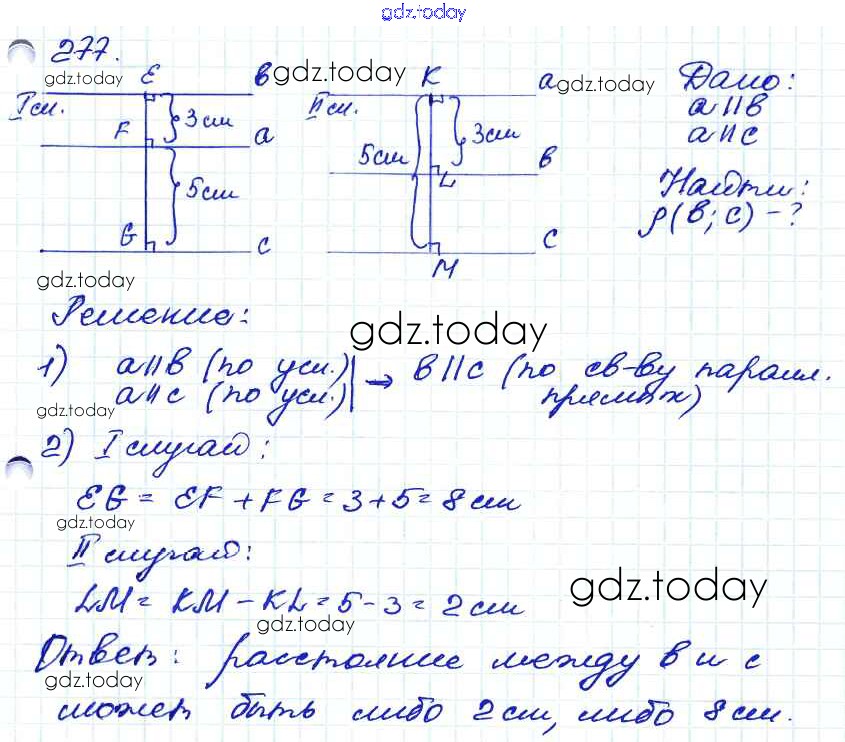 gdz.today
277.
gdz.today E в gdz.today K a gdz.today Дано:
I сл. 3 см II сл. a || в
F a 5 см 3 см a || c
5 см L в Найти:
G c M c ρ(в; c) - ?
gdz.today
Решение:
gdz.today
1) a || в (по усл.) → в || c (по св-ву паралл.
a || c (по усл.) прямых)
gdz.today
2) I случай:
EG = EF + FG = 3 + 5 = 8 см
gdz.today
II случай:
gdz.today
LM = KM - KL = 5 - 3 = 2 см
gdz.today
Ответ: расстояние между в и с
gdz.today
может быть либо 2 см, либо 8 см.